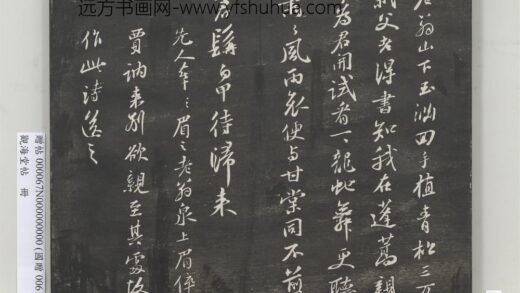 远方书画网-www.yfshuhua.com
老翁山下玉淵回手植青松三万
父老得書知我在蓬蒿親
為君開試看一一龍蛇舞更聽
〻風雨哀便与甘棠同不剪
髯甲待歸来
先人葬〻眉之老翁泉上眉倅
賈訥来別欲親至其處故
作此詩送之
贈帖 000067N000000000 (國贈 006
觀海堂帖 冊